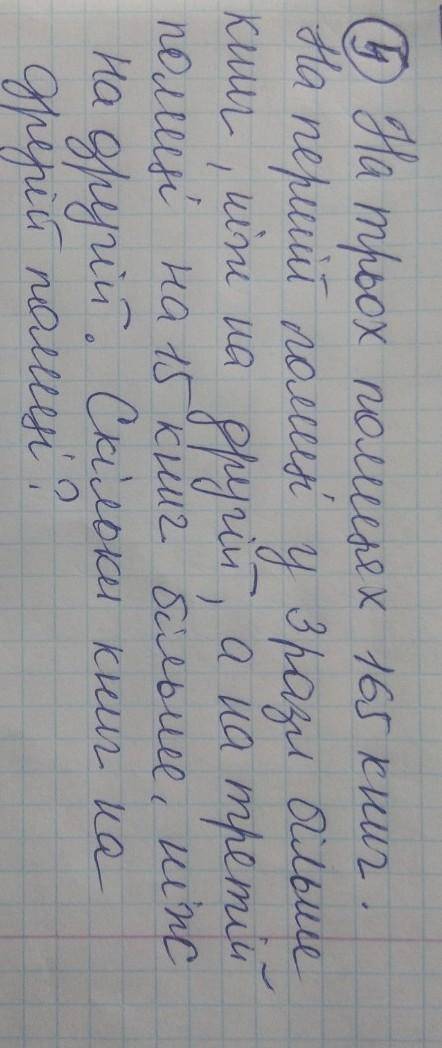 4 На трьох полицях 165 книг.
На першій полиці у 3 рази більше
книг, ніж на другій, а на третій
полиці на 15 книг більше, ніж
на другій. Скільки книг на
другій полиці?